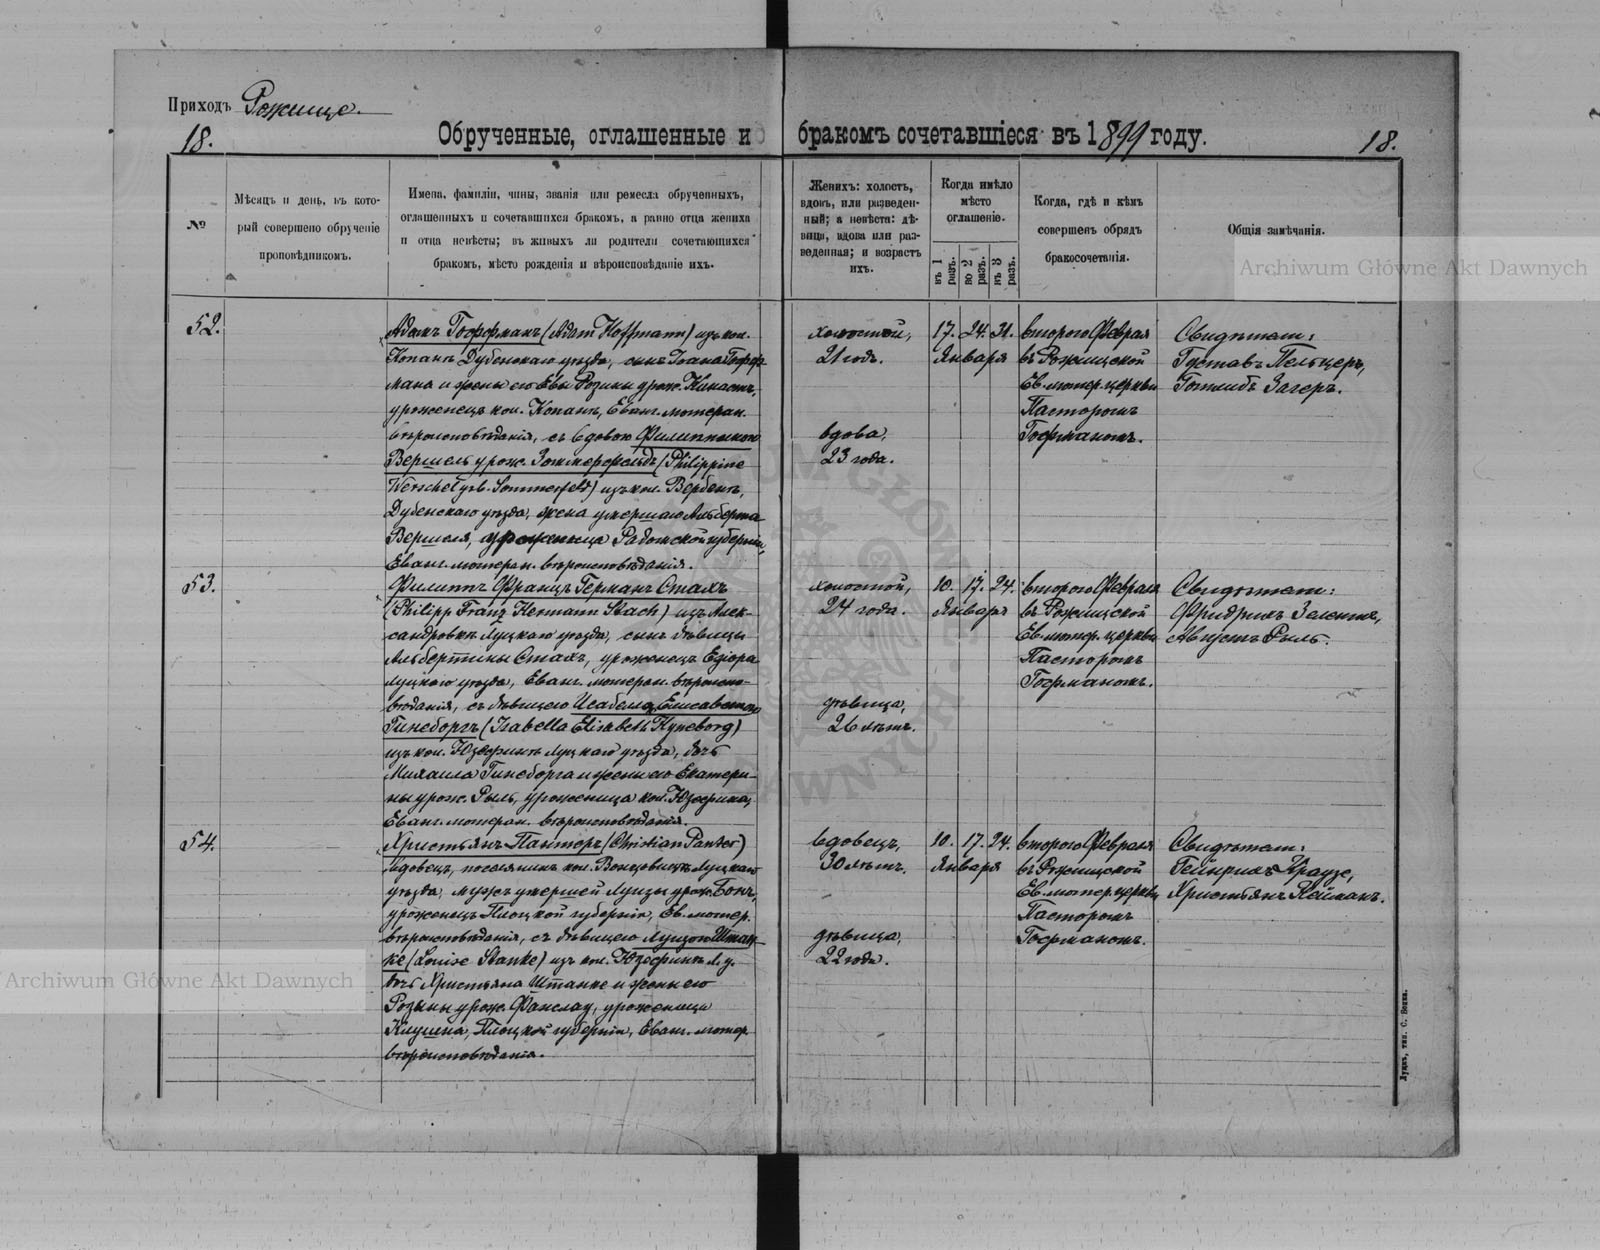 Приходъ Рожище.
18.
Обрученные, оглашенные и бракомъ сочетавшіеся въ 1899 году.
18.
№
Мѣсяцъ и день, въ кото-
рый совершено обрученіе
проповѣдникомъ.
Имена, фамиліи, чины, званія или ремесла обрученныхъ,
оглашенныхъ и сочетавшихся бракомъ, а равно отца жениха
и отца невѣсты; въ живыхъ ли родители сочетающихся
бракомъ, мѣсто рожденія и вѣроисповѣданіе ихъ.
Женихъ: холостъ,
вдовъ, или разведен-
ный; а невѣста: дѣ-
вица, вдова или раз-
веденная; и возрастъ
ихъ.
Когда имѣло
мѣсто
оглашеніе.
въ 1 разъ.
во 2 разъ.
въ 3 разъ.
Когда, гдѣ и кѣмъ
совершенъ обрядъ
бракосочетанія.
Общія замѣчанія.
52.
Адамъ Гоффманъ (Adam Hoffmann) изъ кол.
Копань Дубенскаго уѣзда, сынъ Іоана Гофф-
мана и жены его Евы Розины урож. Кинастъ,
уроженецъ кол. Копань, Еванг. лютеран.
вѣроисповѣданія, съ вдовою Филиппиною
Вершель урож. Зоммерфельдъ (Philippine
Werschel geb. Sommerfeld) изъ кол. Вербень,
Дубенскаго уѣзда, жена умершаго Альберта
Вершеля, уроженица Радомской губерніи,
Еванг. лютеран. вѣроисповѣданія.
холостой,
21 годъ.
вдова,
23 года.
17. 24. 31.
Января
второго Февраля
въ Рожищской
Ев. лютер. церкви
Пасторомъ
Гофманомъ.
Свидѣтели:
Густавъ Пельцеръ,
Готлибъ Загеръ.
53.
Филиппъ Францъ Германъ Стахъ
(Philipp Franz Hermann Stach) изъ Алек-
сандровки Луцкаго уѣзда, сынъ дѣвицы
Альбертины Стахъ, уроженецъ Езіора
Луцкаго уѣзда, Еванг. лютеран. вѣроиспо-
вѣданія, съ дѣвицею Исабелла Елисаветою
Гинеборгъ (Isabella Elisabeth Hyneborg)
изъ кол. Юзефинъ Луцкаго уѣзда, дочь
Михаила Гинеборга и жены его Екатери-
ны урож. Рыль, уроженица кол. Юзефина,
Еванг. лютеран. вѣроисповѣданія.
холостой,
24 года.
дѣвица,
26 лѣтъ.
10. 17. 24.
Января
второго Февраля
въ Рожищской
Ев. лютер. церкви
Пасторомъ
Гофманомъ.
Свидѣтели:
Фридрихъ Зелентъ,
Августъ Рыль.
54.
Христьянъ Пантеръ (Christian Panter)
вдовецъ, поселянинъ кол. Луцкаго
уѣзда, мужъ умершей Луизы урож. Бонъ,
уроженецъ Плоцкой губерніи, Ев. лютер.
вѣроисповѣданія, съ дѣвицею Луизою Штан-
ке (Louise Stanke) изъ кол. Юзефинъ Л. у.
дочь Христьяна Штанке и жены его
Розины урож. Фанслау, уроженица
Клушена, Плоцкой губерніи, Еванг. лютер.
вѣроисповѣданія.
вдовецъ,
30 лѣтъ.
дѣвица,
22 года.
10. 17. 24.
Января
второго Февраля
въ Рожищской
Ев. лютер. церкви
Пасторомъ
Гофманомъ.
Свидѣтели:
Гейнрихъ Краузе,
Христьянъ Нейманъ.
Луцкъ, тип. С. Бокка.
Archiwum Główne Akt Dawnych
Archiwum Główne Akt Dawnych